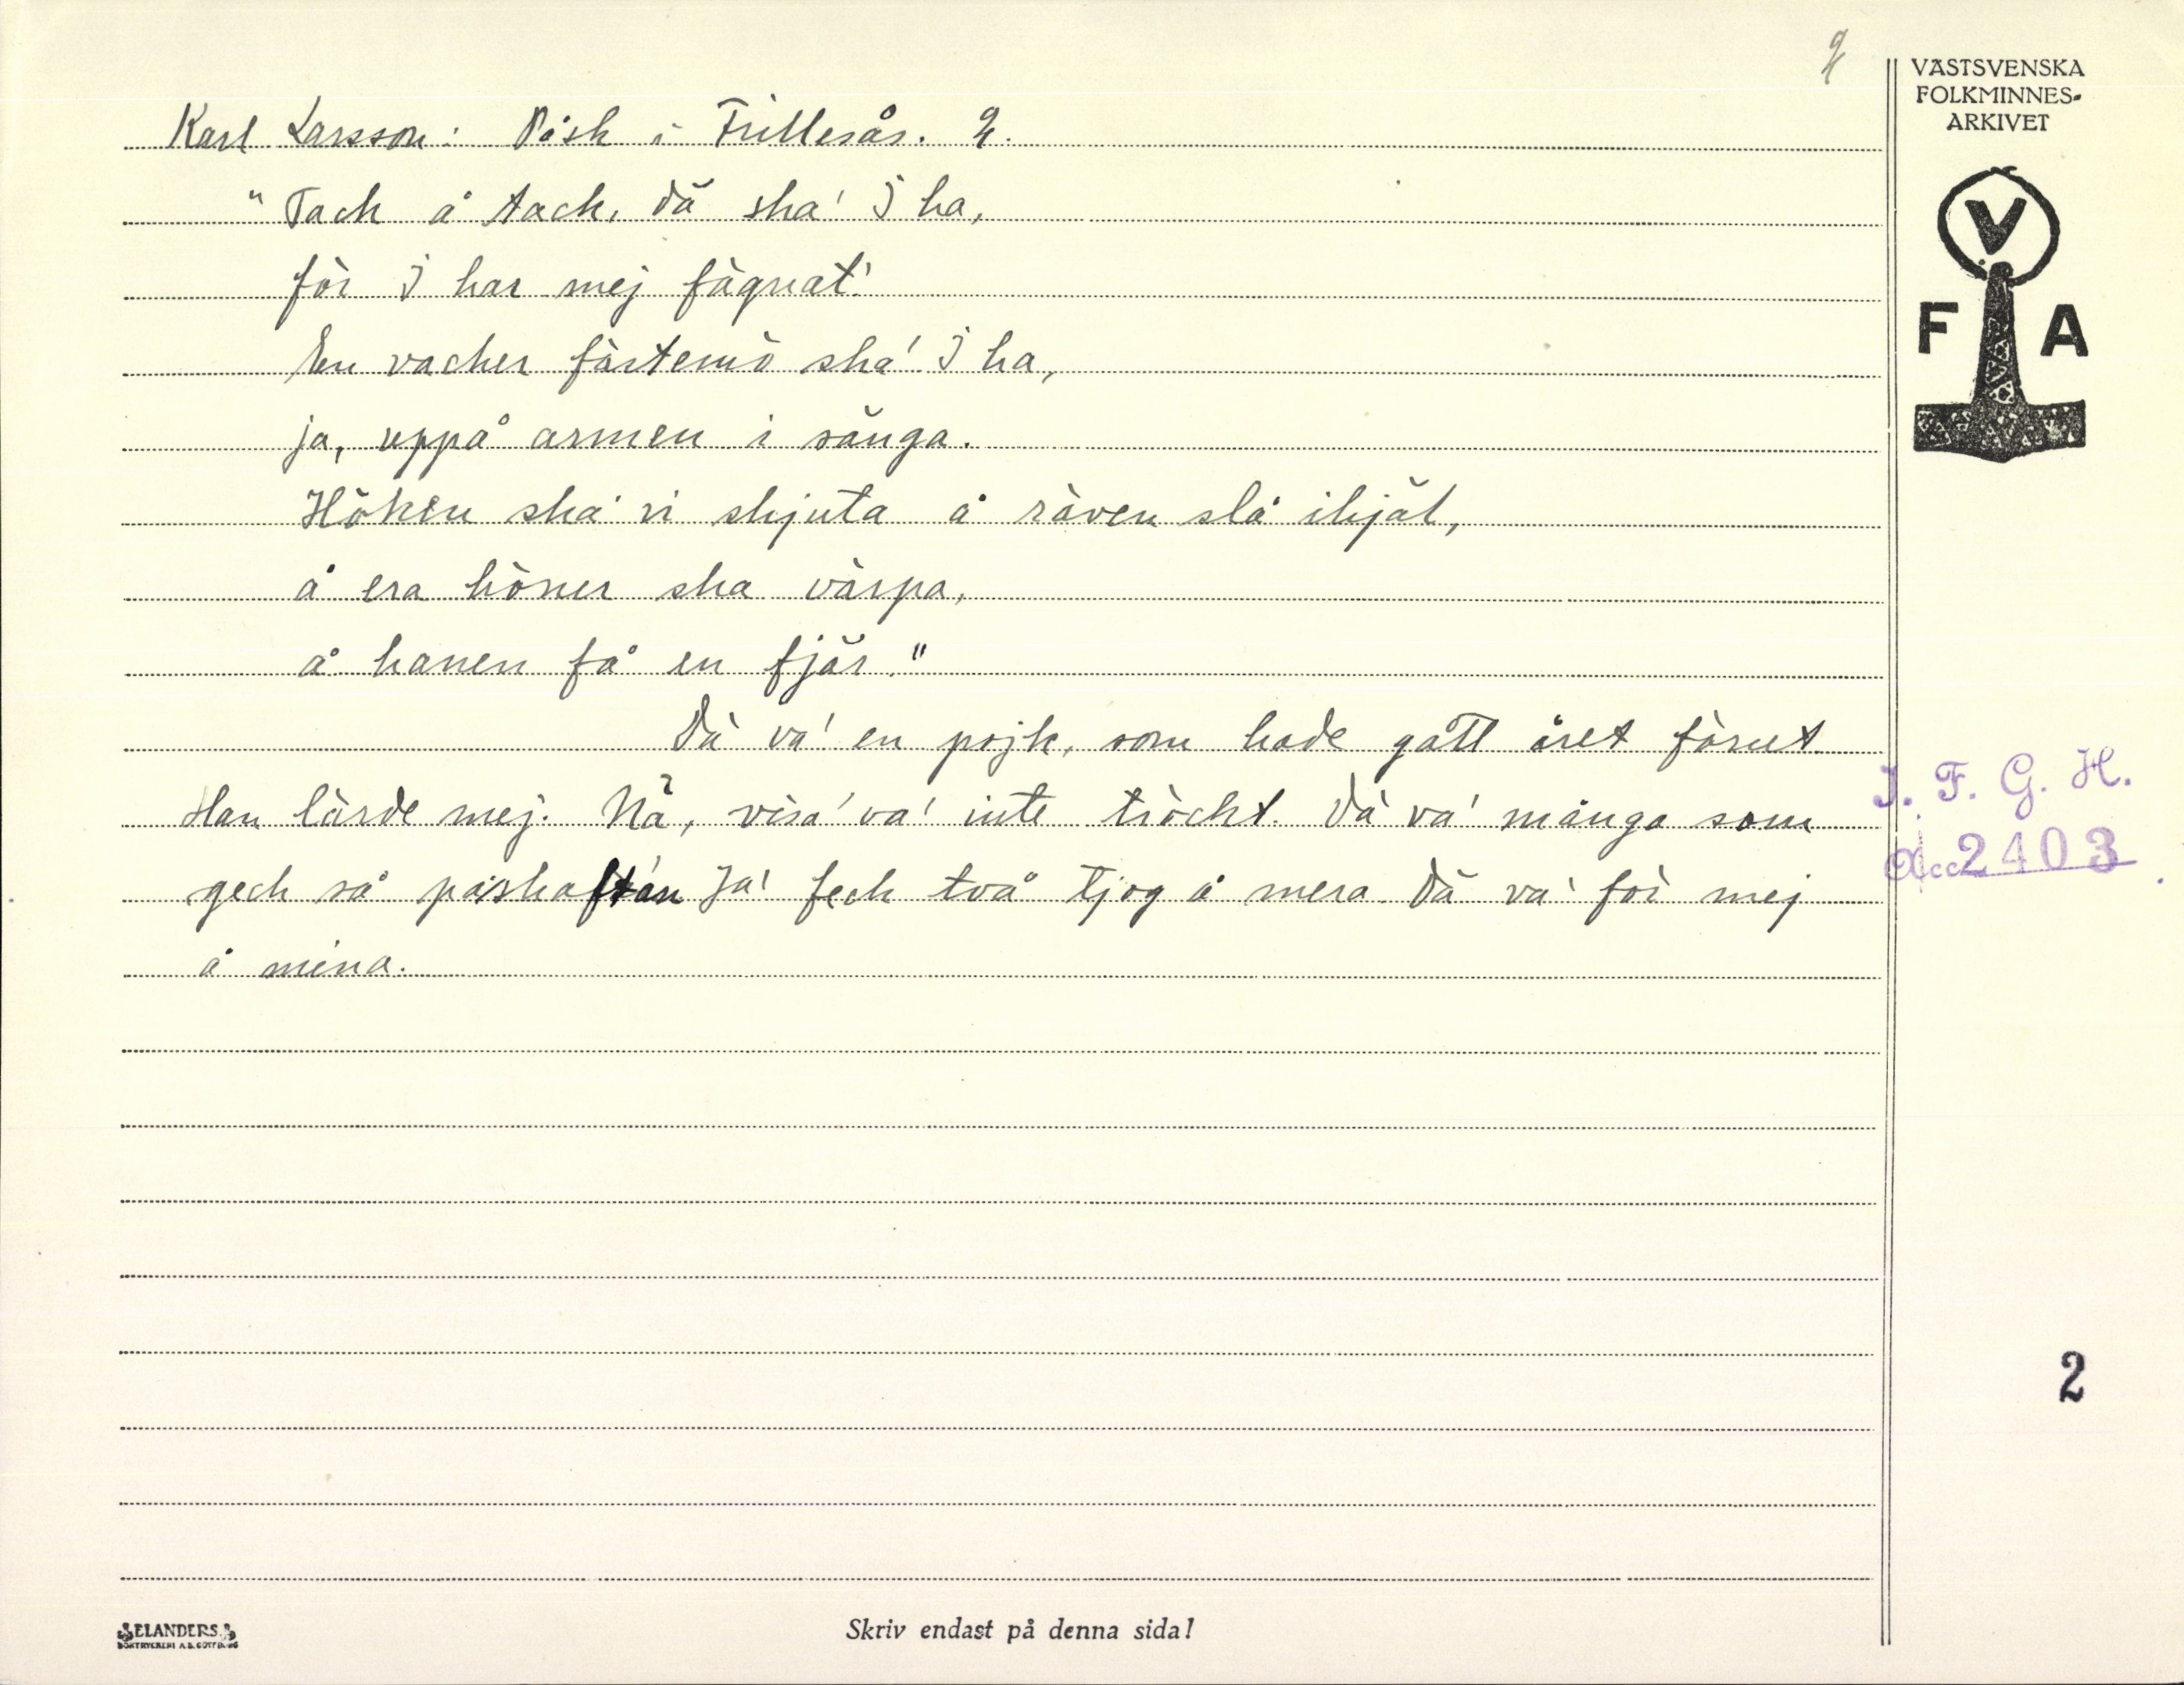 2
VÄSTSVENSKA
FOLKMINNES-
ARKIVET
V
F A
Karl Larsson: Påsk i Frillesås. 2.
"Tack å tack, dä ska' I ha,
för I har mej fägnat!
En vacker fästemö ska' I ha,
ja, uppå armen i sänga.
Höken ska' vi skjuta å räven slå ihjäl,
å era höner ska värpa,
å hanen få en fjär."
Dä va' en pojk, som hade gått året förut
Han lärde mej. Nä, visa' va' inte tröckt. Dä va' många som
geck så påskaftan Ja' feck två tjog å mera. Dä va' för mej
å mina.
I. F. G. H.
Acc 2403
2
ELANDERS
BOKTRYCKERI A.B. GÖTEBORG
Skriv endast på denna sida!